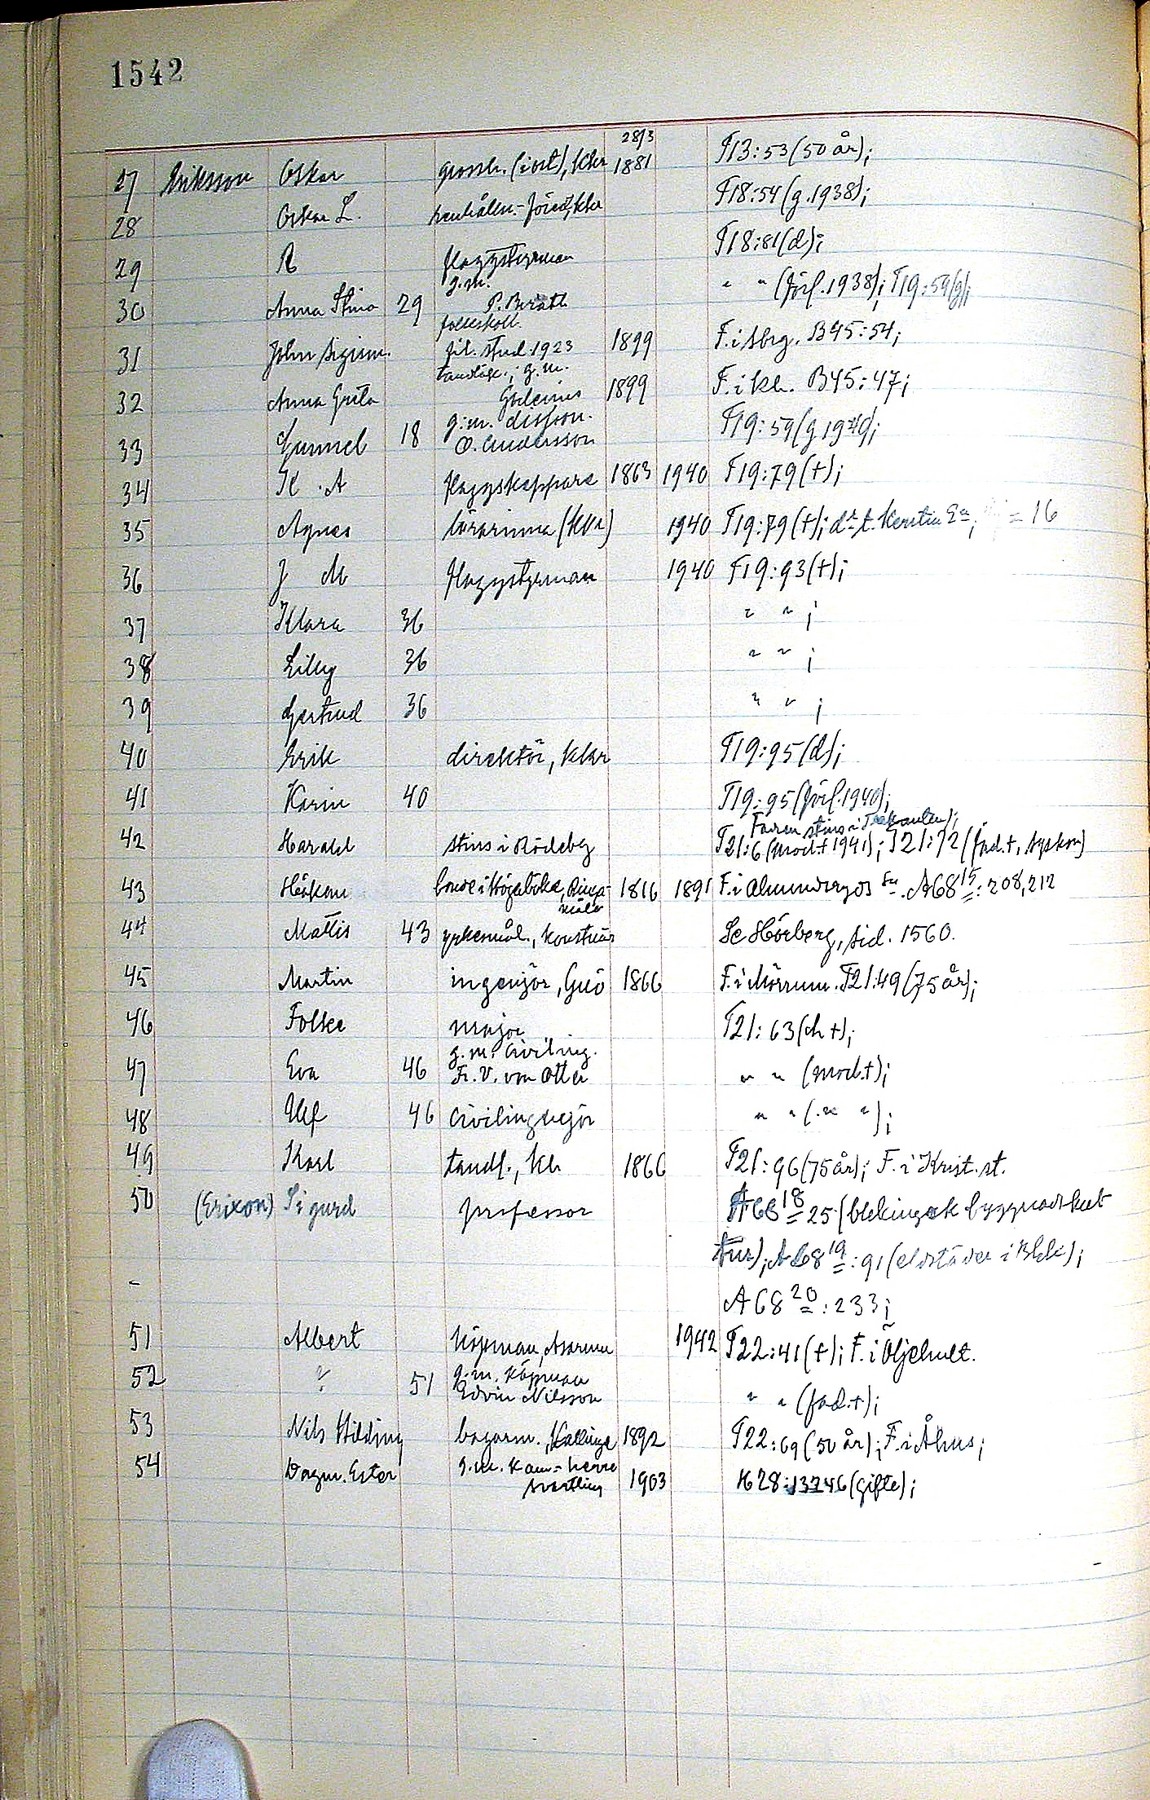 1542
28/3
27 Eriksson Oskar grossh. (i ost), Kkr 1881 T13:53 (50 år);
28 Oskar L. T18:54 (g. 1938);
29 R flaggstyrman T18:81 (d);
g.m.
30 Anna Stina 29 " " (förl. 1938); T19:59 (g);
folkskoll.
31 John Sigism. fil. stud. 1923 1899 F. i B45:54;
tandläk.; g.m.
32 Anna Greta 1899 F. i kh. B45:47;
g.m. disp.
33 Gunnel 18 O. Andersson T19:59 (g 1940);
34 K. A flaggskeppare 1863 1940 T19:79 (t);
35 Agnes lärarinna (Kkr) 1940 T19:79 (t); dr t. Kerstin = 16
36 J M flaggstyrman 1940 T19:93 (t);
37 Klara 36 " " ;
38 Lilly 36 " " ;
39 Gertrud 36 " " ;
40 Erik direktör, Kkr T19:95 (d);
41 Karin 40 T19:95 (förl. 1940);
Faren stins i
42 Harald stins i Rödeby T21:6 (mod. t 1941); T21:72 (fad. t, syskon)
43 Håkan bonde i Högaböke, Ringa- 1816 1891 F. i Almundsryds sn. A68 15:208, 212
måla
44 Mattis 43 yrkesmål., konstnär Se Hörberg, sid. 1560.
45 Martin ingenjör, Guö 1866 F. i Mörrum. T21:49 (75 år);
46 Folke major T21:63 (h t);
g.m. civiling.
47 Eva 46 Fr. V. von Otter " " (mod. t);
48 Ulf 46 civilingenjör " " ( " " );
49 Karl tandl., Kh 1866 T21:96 (75 år); F. i Krist. st.
50 (Erixon) Sigurd professor A68 18 25 (blekingsk byggnadskul
tur); A68 19:91 (eldstäder i Blek.);
-
A68 20:233;
51 Albert köpman, Asarum 1942 T22:41 (t); F. i Öljehult.
g.m. köpman
52 ? 51 Edvin Nilsson " " (fad. t);
53 Nils Hilding bagarm., Kallinge 1892 T22:69 (50 år); F. i Åhus;
54 Dagm. Ester g.m. kam-herre 1903 K28:13746 (gifte);
Svartling